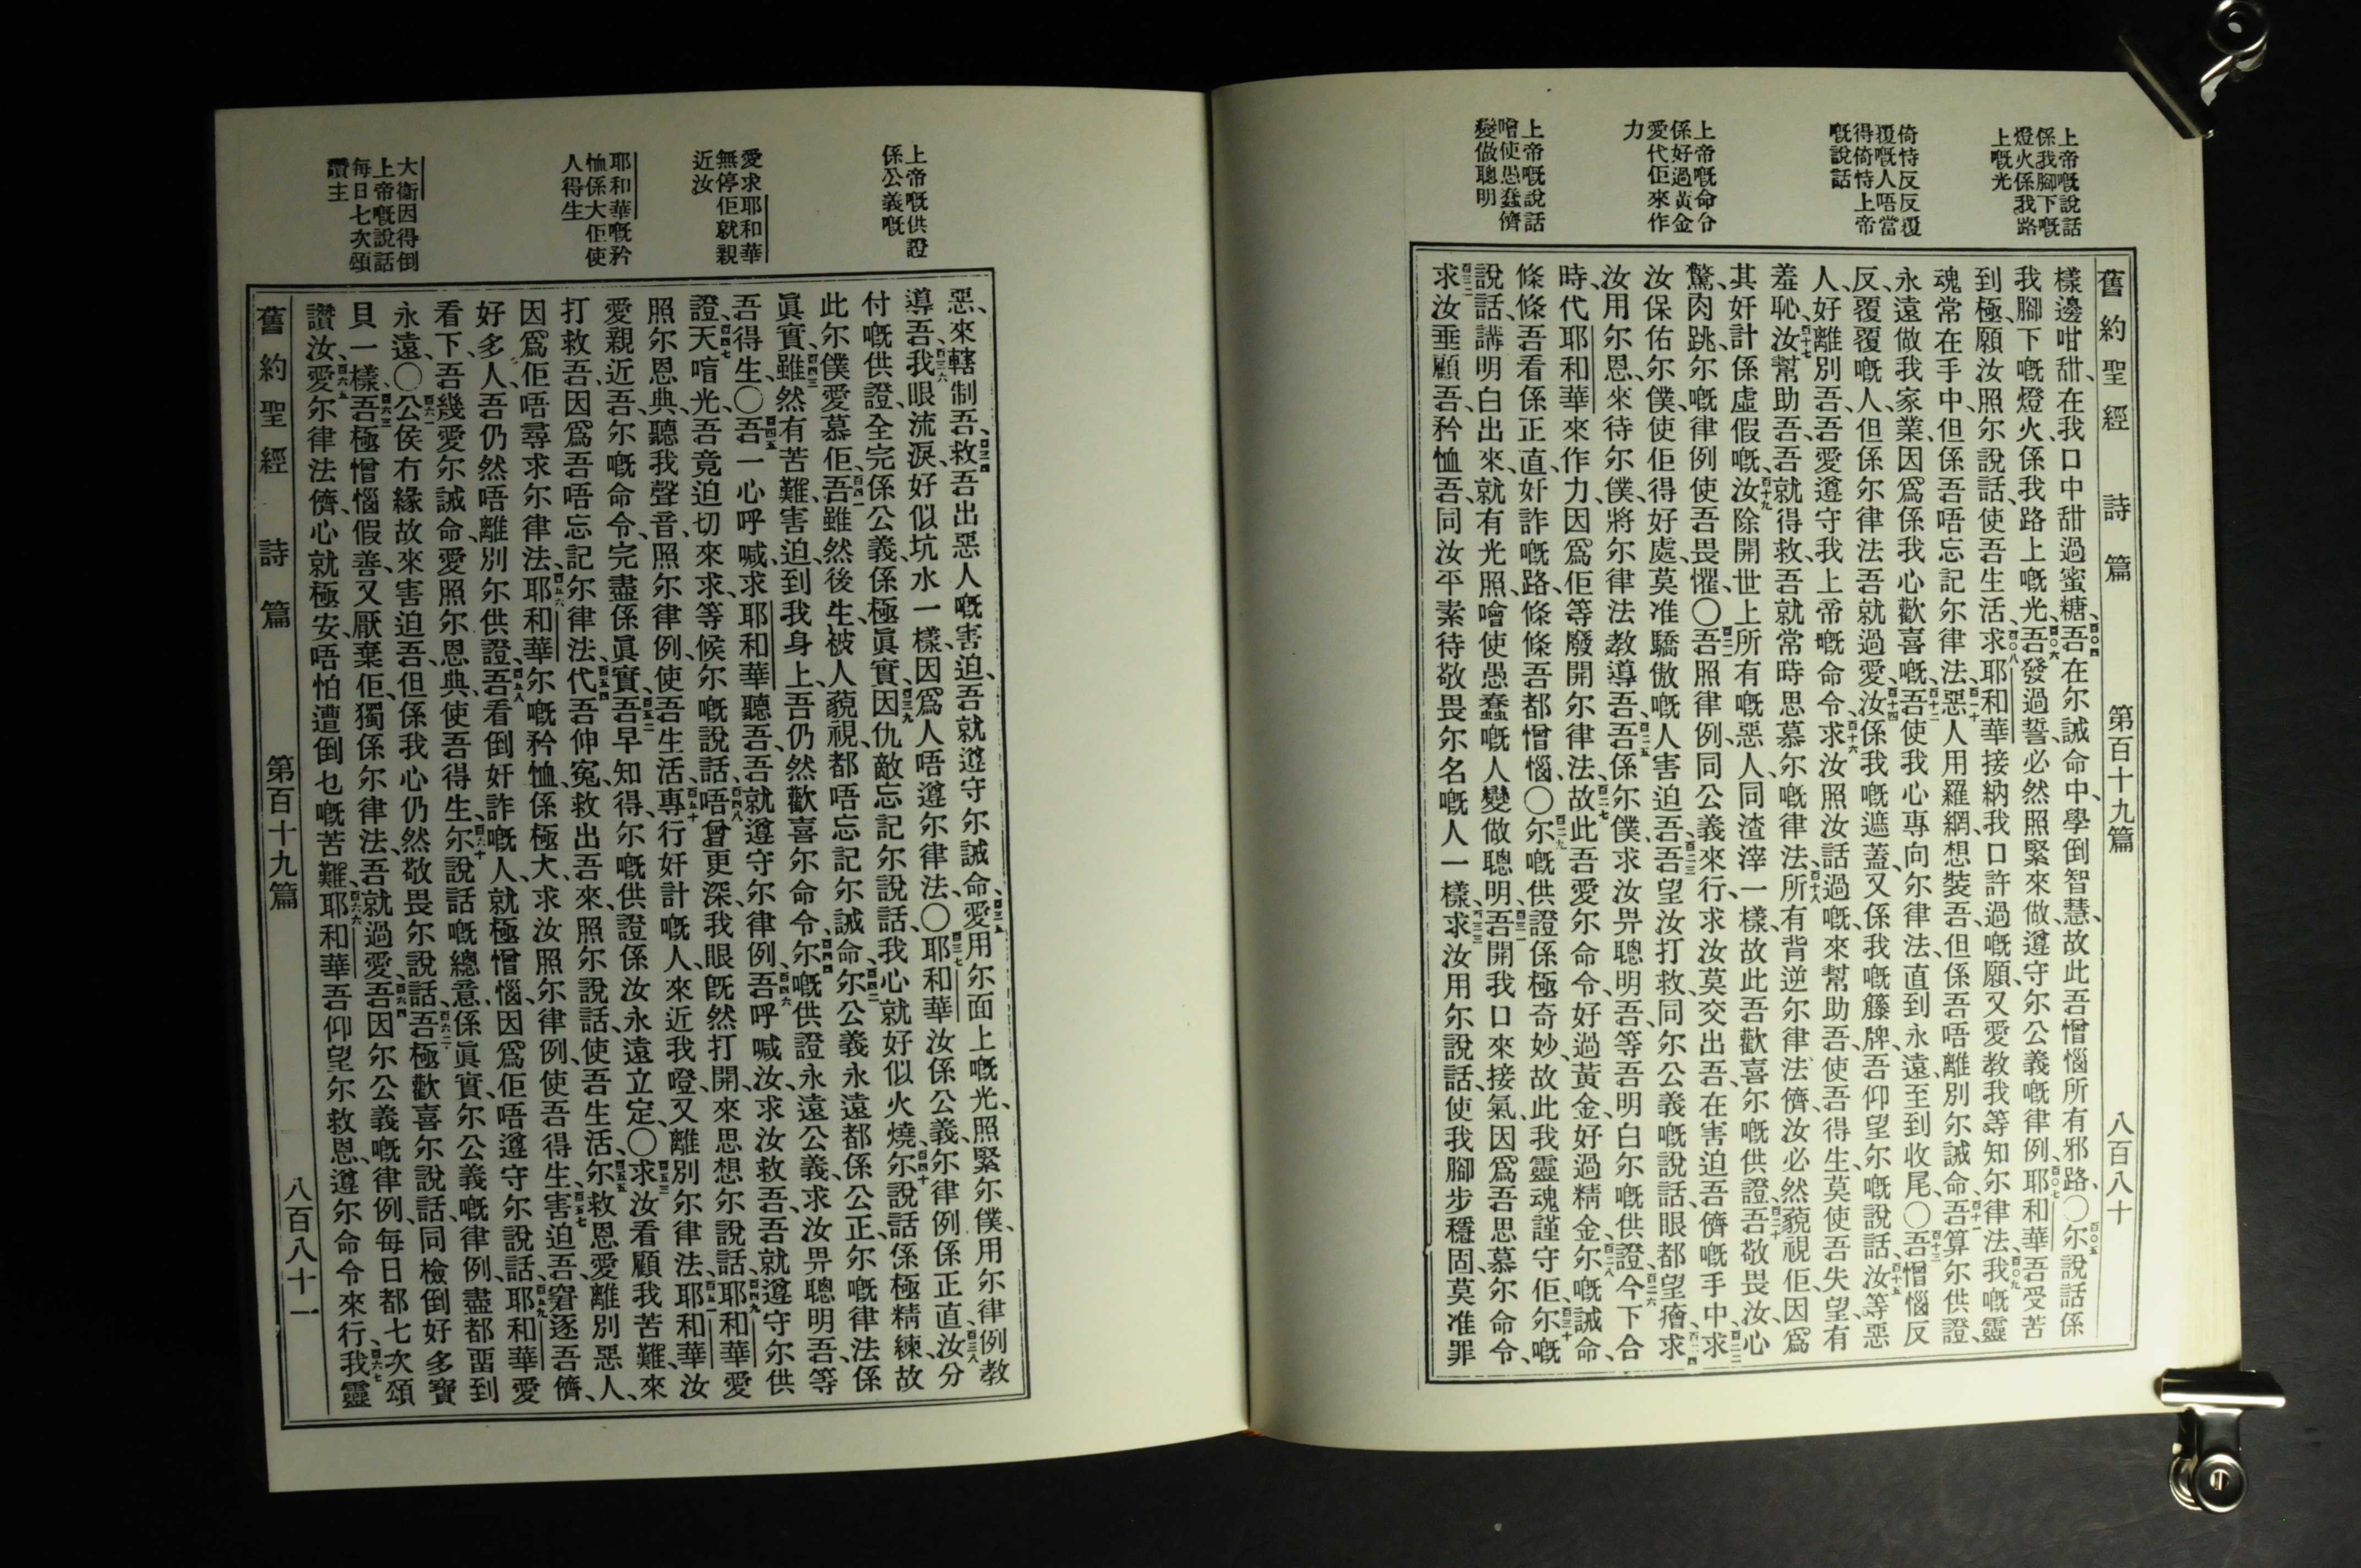 上帝嘅說話
係我腳下嘅
燈火係我路
上嘅光
倚恃反反覆
覆嘅人唔當
得倚恃上帝
嘅說話
上帝嘅命令
係好過黃金
愛代佢來作
力
上帝嘅說話
噲使愚蠢儕
變做聰明
舊約聖經 詩篇 第百十九篇 八百八十
樣邊咁甜、在我口中甜過蜜糖、吾在尔誡命中、學倒智慧、故此吾憎惱所有邪路、〇尔說話係
我腳下嘅燈火、係我路上嘅光、吾發過誓、必然照緊來做、遵守尔公義嘅律例、耶和華吾受苦
到極、願汝照尔說話、使吾生活、求耶和華接納我口許過嘅願、又愛教我等知尔律法、我嘅靈
魂常在手中、但係吾唔忘記尔律法、惡人用羅網、想裝吾、但係吾唔離別尔誡命、吾算尔供證、
永遠做我家業、因爲係我心歡喜嘅、吾使我心專向尔律法、直到永遠、至到收尾、〇吾憎惱反
反覆覆嘅人、但係尔律法吾就過愛、汝係我嘅遮蓋、又係我嘅籐牌、吾仰望尔嘅說話、汝等惡
人、好離別吾、吾愛遵守我上帝嘅命令、求汝照汝話過嘅、來幫助吾、使吾得生、莫使吾失望、有
羞恥、汝幫助吾、吾就得救、吾就常時思慕尔嘅律法、所有背逆尔律法儕、汝必然藐視佢、因爲
其奸計係虛假嘅、汝除開世上所有嘅惡人、同渣滓一樣、故此吾歡喜尔嘅供證、吾敬畏汝、心
驚肉跳、尔嘅律例使吾畏懼、〇吾照律例、同公義來行、求汝莫交出吾、在害迫吾儕嘅手中、求
汝保佑尔僕、使佢得好處、莫准驕傲嘅人害迫吾、吾望汝打救、同尔公義嘅說話、眼都望癐、求
汝用尔恩、來待尔僕、將尔律法教導吾、吾係尔僕、求汝畀聰明吾、等吾明白尔嘅供證、今下合
時代耶和華來作力、因爲佢等廢開尔律法、故此吾愛尔命令、好過黃金、好過精金、尔嘅誡命、
條條吾看係正直、奸詐嘅路、條條吾都憎惱、〇尔嘅供證係極奇妙、故此我靈魂謹守佢、尔嘅
說話、講明白出來、就有光照、噲使愚蠢嘅人變做聰明、吾開我口來接氣、因爲吾思慕尔命令、
求汝垂顧吾、矜恤吾、同汝平素待敬畏尔名嘅人一樣、求汝用尔說話、使我腳步穩固、莫准罪
上帝嘅供證
係公義嘅
愛求耶和華
無停佢就親
近汝
耶和華嘅矜
恤係大佢使
人得生
大衛因得倒
上帝嘅說話
每日七次頌
讚主
惡、來轄制吾、救吾出惡人嘅害迫、吾就遵守尔誡命、愛用尔面上嘅光、照緊尔僕、用尔律例教
導吾、我眼流淚、好似坑水一樣、因爲人唔遵尔律法、〇耶和華汝係公義、尔律例係正直、汝分
付嘅供證、全完係公義、係極眞實、因仇敵忘記尔說話、我心就好似火燒、尔說話係極精練、故
此尔僕愛慕佢、吾雖然後生、被人藐視、都唔忘記尔誡命、尔公義永遠都係公正、尔嘅律法係
眞實、雖然有苦難、害迫、到我身上、吾仍然歡喜尔命令、尔嘅供證永遠公義、求汝畀聰明吾、等
吾得生、〇吾一心呼喊、求耶和華聽吾、吾就遵守尔律例、吾呼喊汝、求汝救吾、吾就遵守尔供
證、天唁光、吾竟迫切來求、等候尔嘅說話、唔曾更深、我眼旣然打開、來思想尔說話、耶和華愛
照尔恩典、聽我聲音、照尔律例、使吾生活、專行奸計嘅人、來近我嶝、又離別尔律法、耶和華汝
愛親近吾、尔嘅命令、完盡係眞實、吾早知得、尔嘅供證、係汝永遠立定、〇求汝看顧我苦難、來
打救吾、因爲吾唔忘記尔律法、代吾伸冤、救出吾來、照尔說話、使吾生活、尔救恩愛離別惡人、
因爲佢唔尋求尔律法、耶和華尔嘅矜恤、係極大、求汝照尔律例、使吾得生、害迫吾、窘逐吾儕、
好多人、吾仍然唔離別尔供證、吾看倒奸詐嘅人、就極憎惱、因爲佢唔遵守尔說話、耶和華愛
看下、吾幾愛尔誡命、愛照尔恩典、使吾得生、尔說話嘅總意、係眞實、尔公義嘅律例、盡都畱到
永遠、〇公侯冇緣故來害迫吾、但係我心仍然敬畏尔說話、吾極歡喜尔說話、同檢倒好多寶
貝一樣、吾極憎惱假善、又厭棄佢、獨係尔律法、吾就過愛、吾因尔公義嘅律例、每日都七次頌
讚汝、愛尔律法儕、心就極安、唔怕遭倒乜嘅苦難、耶和華吾仰望尔救恩、遵尔命令來行、我靈
舊約聖經 詩篇 第百十九篇 八百八十一